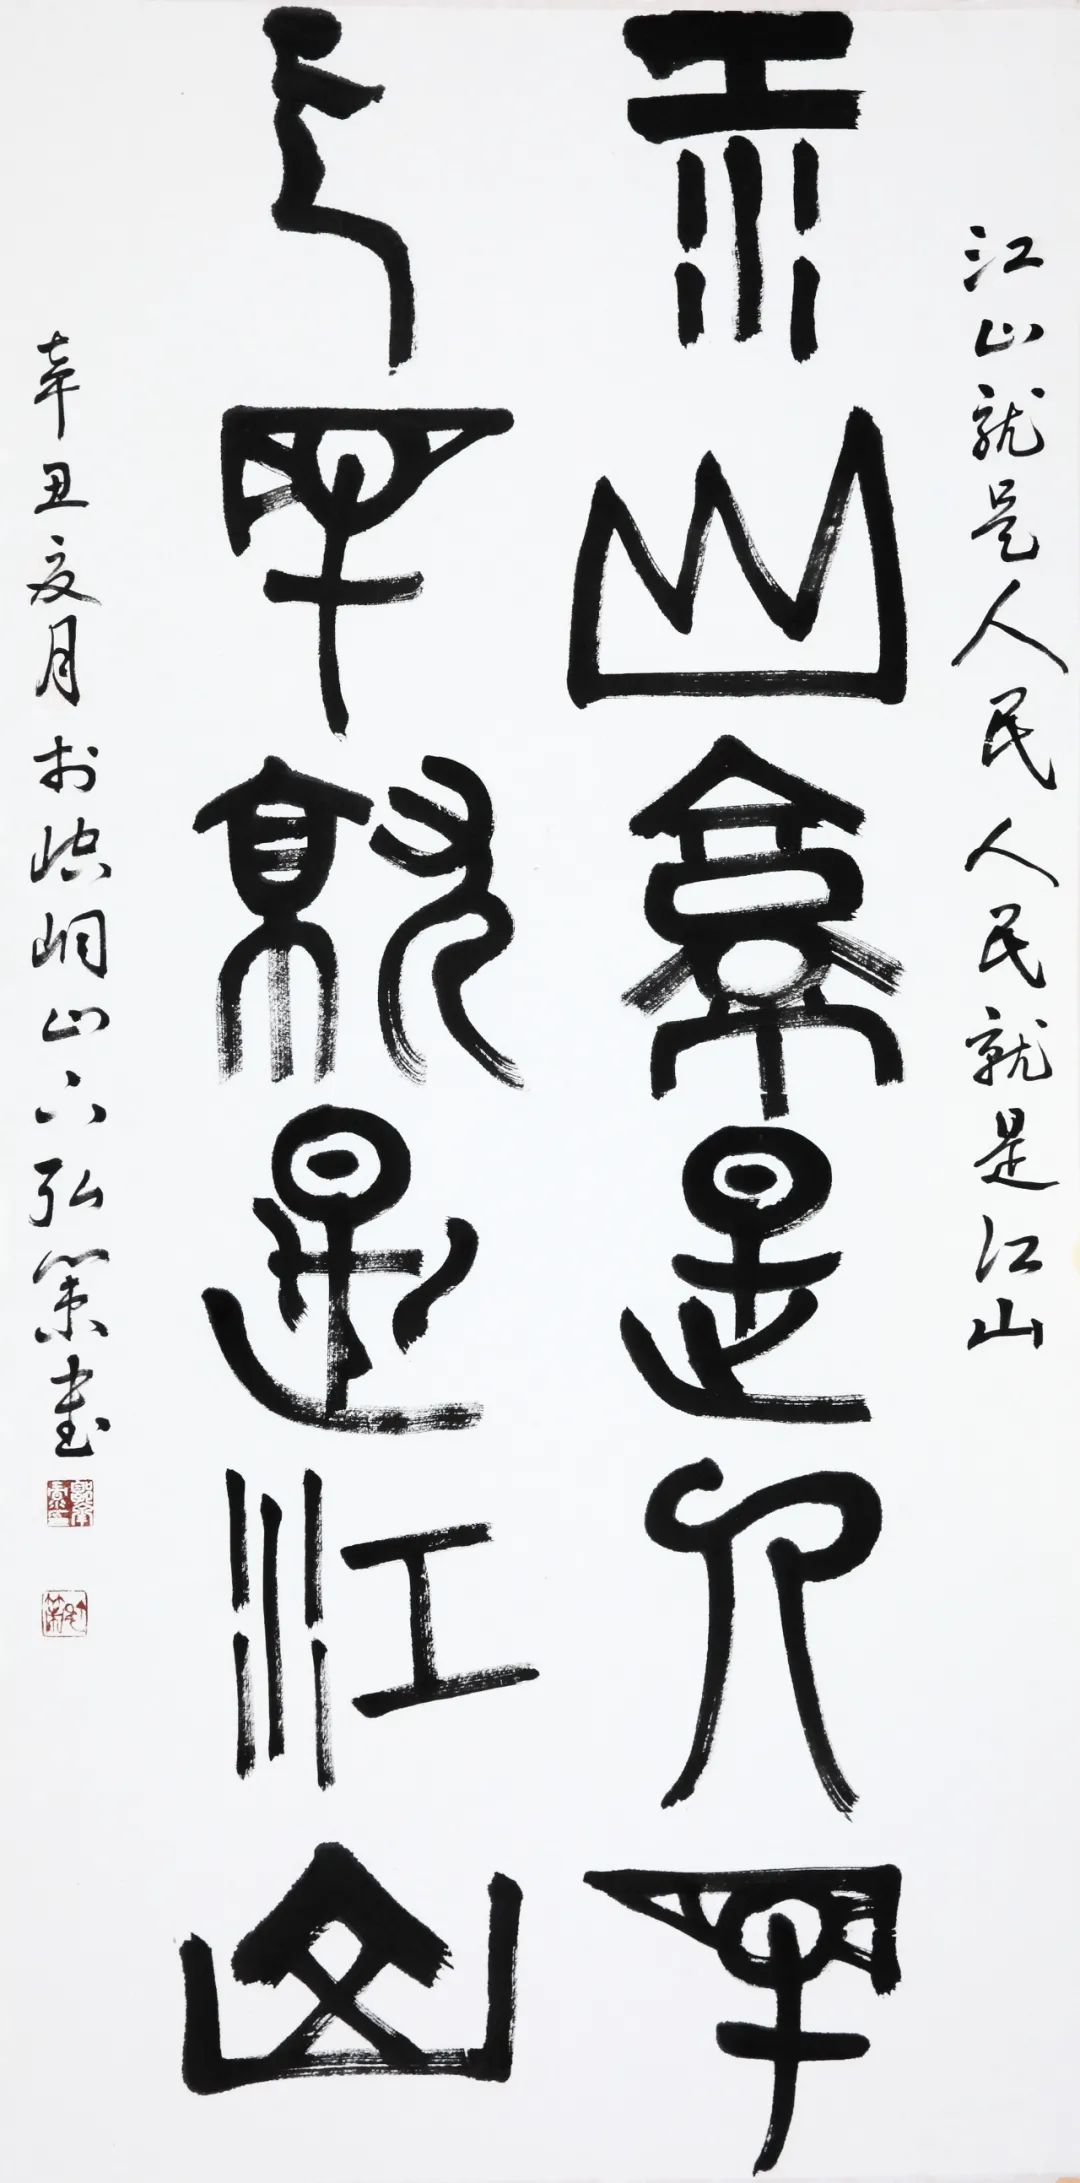 江山就是人民人民就是江山
江山就是人民
人民就是江山
辛丑夏月於崆峒山下弘策書